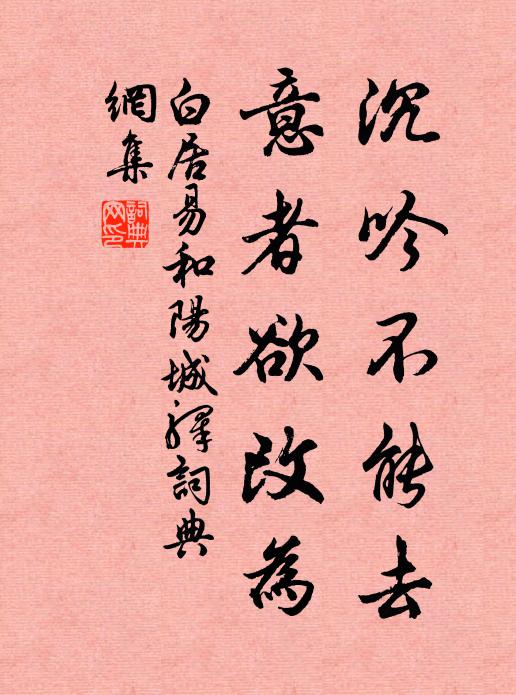 沉吟不能去
意者欲改為
白居易和陽城驛詞典
網集
詞典網印